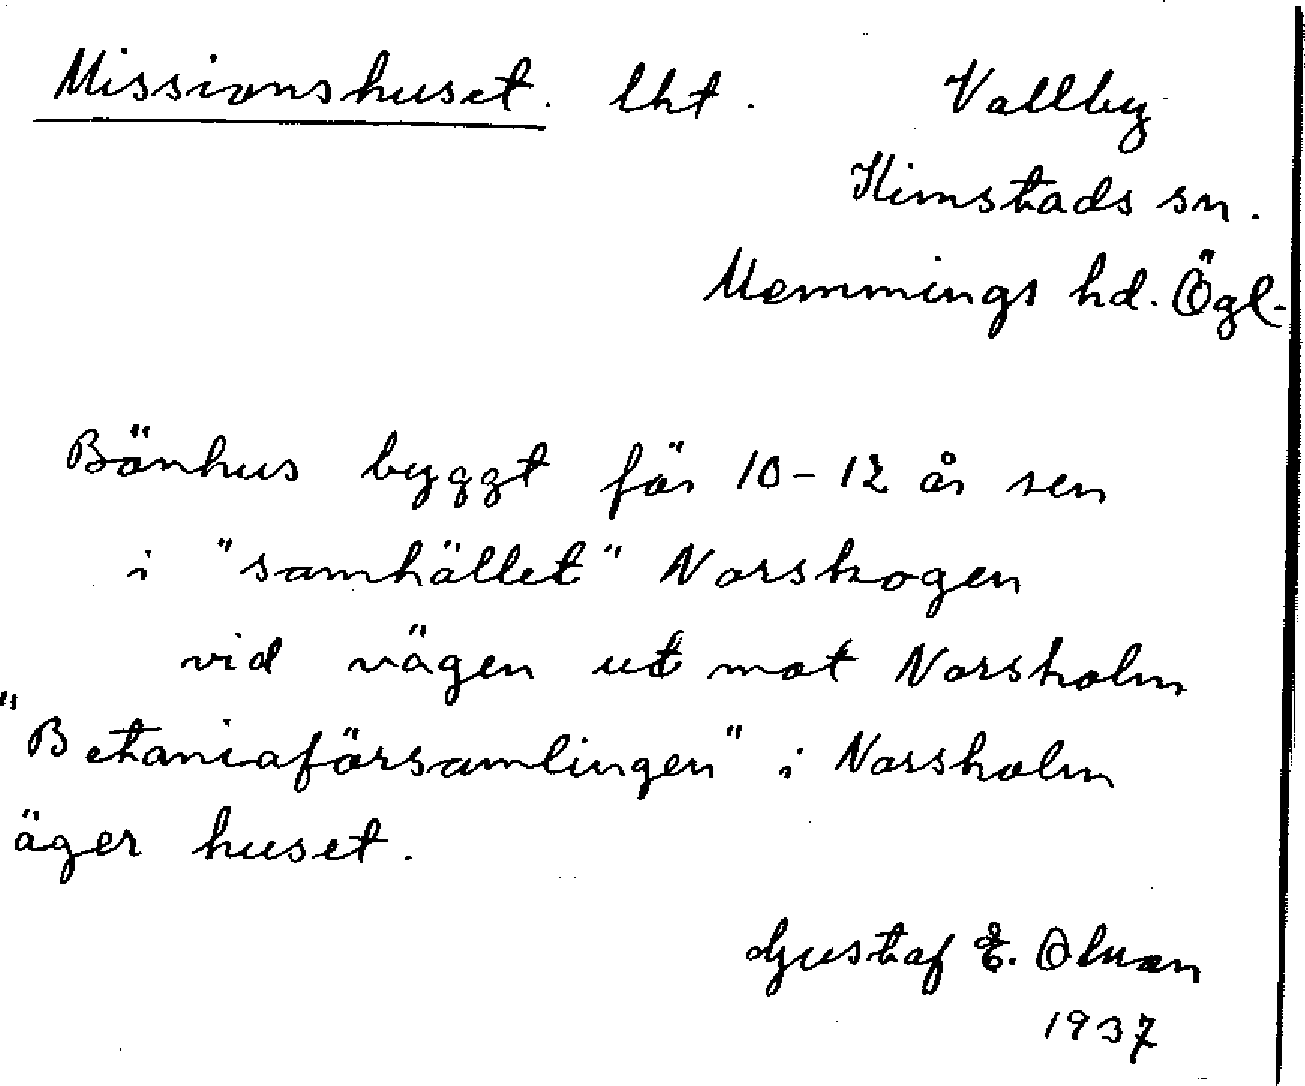 Missionshuset. lht. Vallby
Kimstads sn.
Memmings hd. Ögl.
Bönhus byggt för 10-12 år sen
i "samhället" Norskogen
vid vägen ut mot Norsholm
"Betaniaförsamlingen" i Norsholm
äger huset.
Gustaf E. Olsson
1937